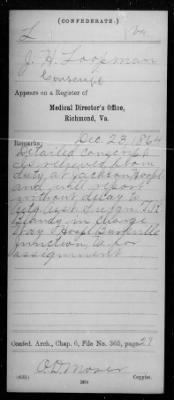 (CONFEDERATE.)
L | Va
J. H. Loopman
Conscript
Appears on a Register of
Medical Director's Office,
Richmond, Va.
Remarks: Dec. 23, 1864
Detailed conscript
is relieved from
duty at Jackson Hospl
and will report
without delay to
Asst Surgn T. R.
Blandy in charge
Way Hospl Burkeville
Junction, Va for
assignment
Confed. Arch., Chap. 6, File No. 363, page 29
O. D. Moser
Copyist.